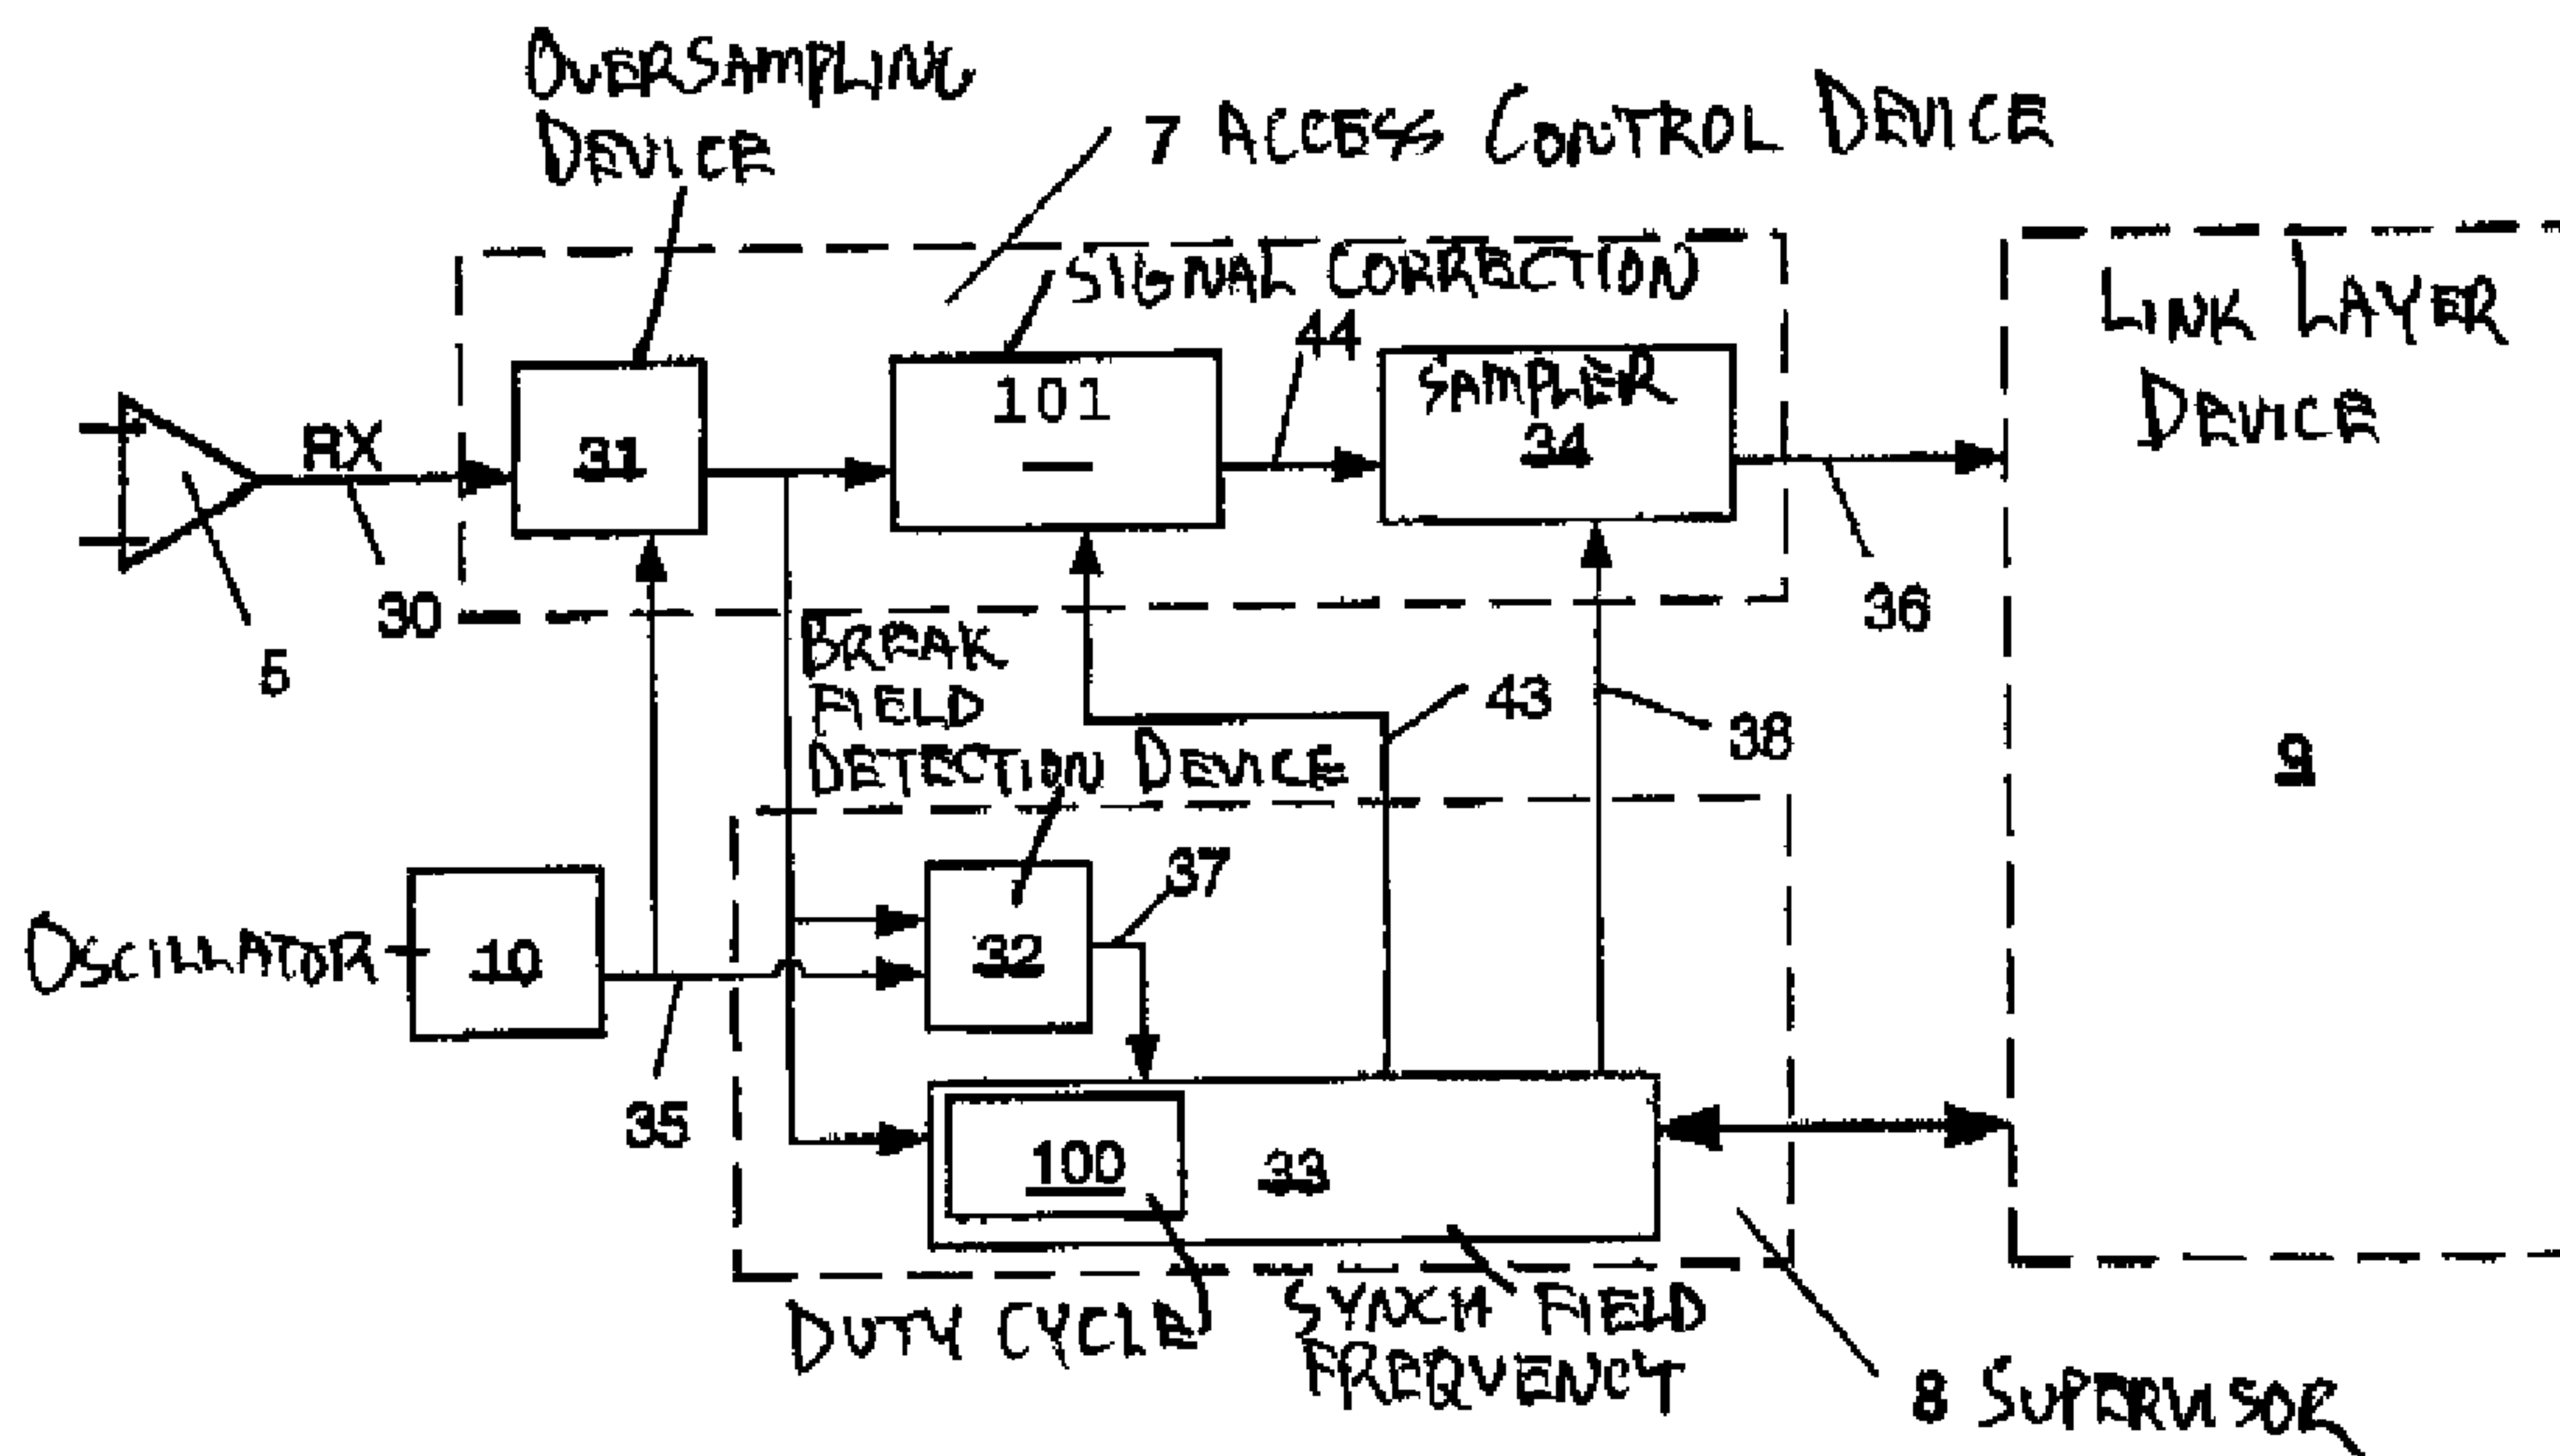 OVERSAMPLING
DEVICE
7 ACCESS CONTROL DEVICE
SIGNAL CORRECTION
44
LINK LAYER
DEVICE
RX
31
101
SAMPLER
34
30
5
36
BREAK
FIELD
DETECTION DEVICE
43
38
9
37
OSCILLATOR
10
32
35
100
33
DUTY CYCLE
SYNCH FIELD
FREQUENCY
8 SUPERVISOR